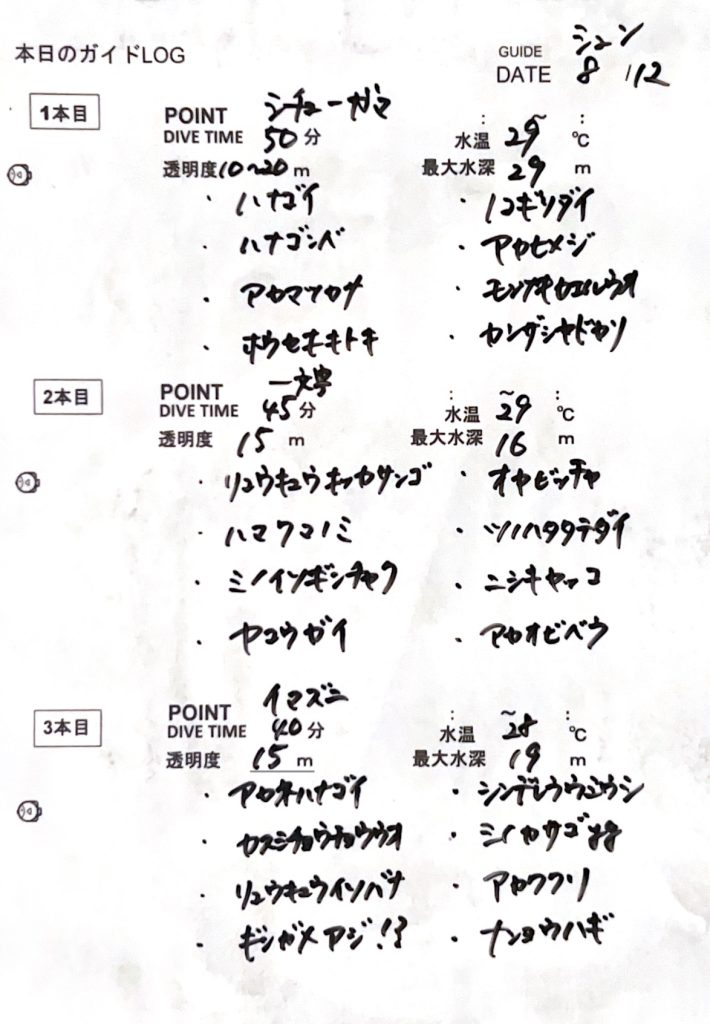 本日のガイドLOG
GUIDE シュン
DATE 8/12
1本目
POINT シチューガマ
DIVE TIME 50分
水温 ~29℃
透明度10~20m
最大水深 29m
・ハナゴイ
・ノコギリダイ
・ハナゴンベ
・アカヒメジ
・アカマツカサ
・モンツキカエルウオ
・ホウセキキントキ
・カンザシヤドカリ
2本目
POINT 一文字
DIVE TIME 45分
水温 ~29℃
透明度 15m
最大水深 16m
・リュウキュウキッカサンゴ
・オヤビッチャ
・ハマクマノミ
・ツノハタタテダイ
・ミノイソギンチャク
・ニシキヤッコ
・ヤコウガイ
・アカオビベラ
3本目
POINT イマズニ
DIVE TIME 40分
水温 ~28℃
透明度 15m
最大水深 19m
・アカネハナゴイ
・シンデレラウミウシ
・カスミチョウチョウウオ
・ミノカサゴyg
・リュウキュウイソバナ
・ギンガメアジ!?
・ナンヨウハギ